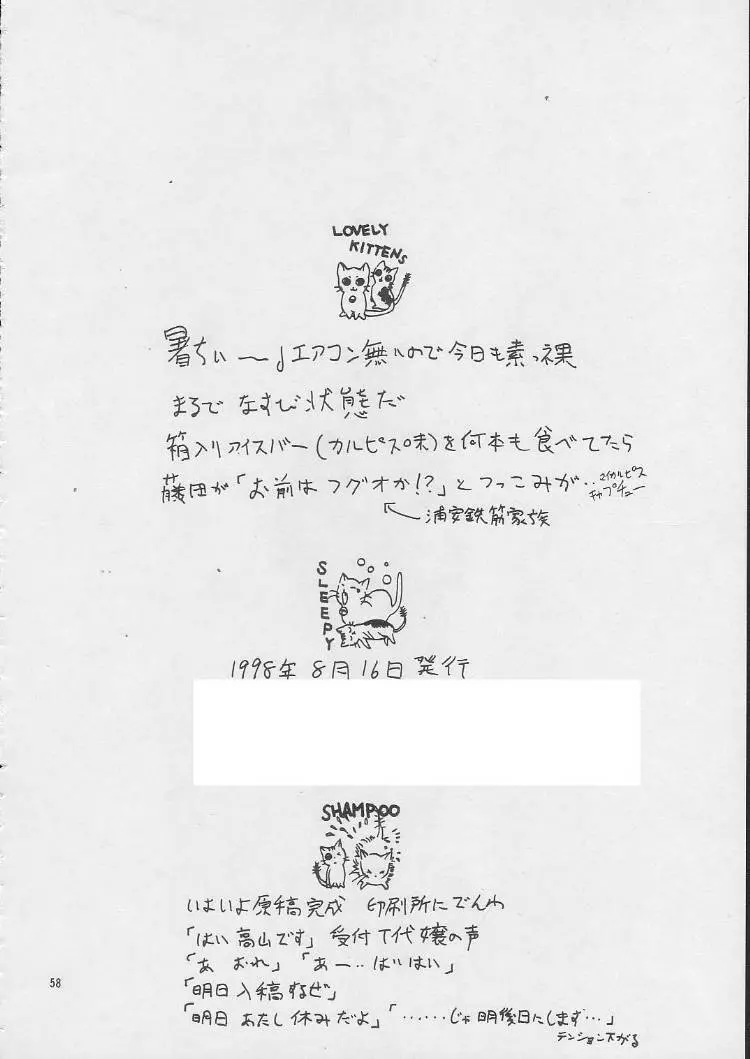 LOVELY
KITTENS
暑ちぃ〜♩エアコン無いので今日も素っ裸
まるで なすび状態だ
箱入りアイスバー(カルピス味)を何本も食べてたら
藤田が「お前は フグオか!?」とつっこみが‥
浦安鉄筋家族
SLEEPY
1998年 8月16日 発行
SHAMPOO
いよいよ原稿完成 印刷所にでんわ
「はい 高山です」受付 T代嬢の声
「あ おれ」「あー‥はいはい」
「明日 入稿するぜ」
「明日 あたし 休みだよ」「‥‥‥じゃ 明後日にします‥」
テンション下がる
58